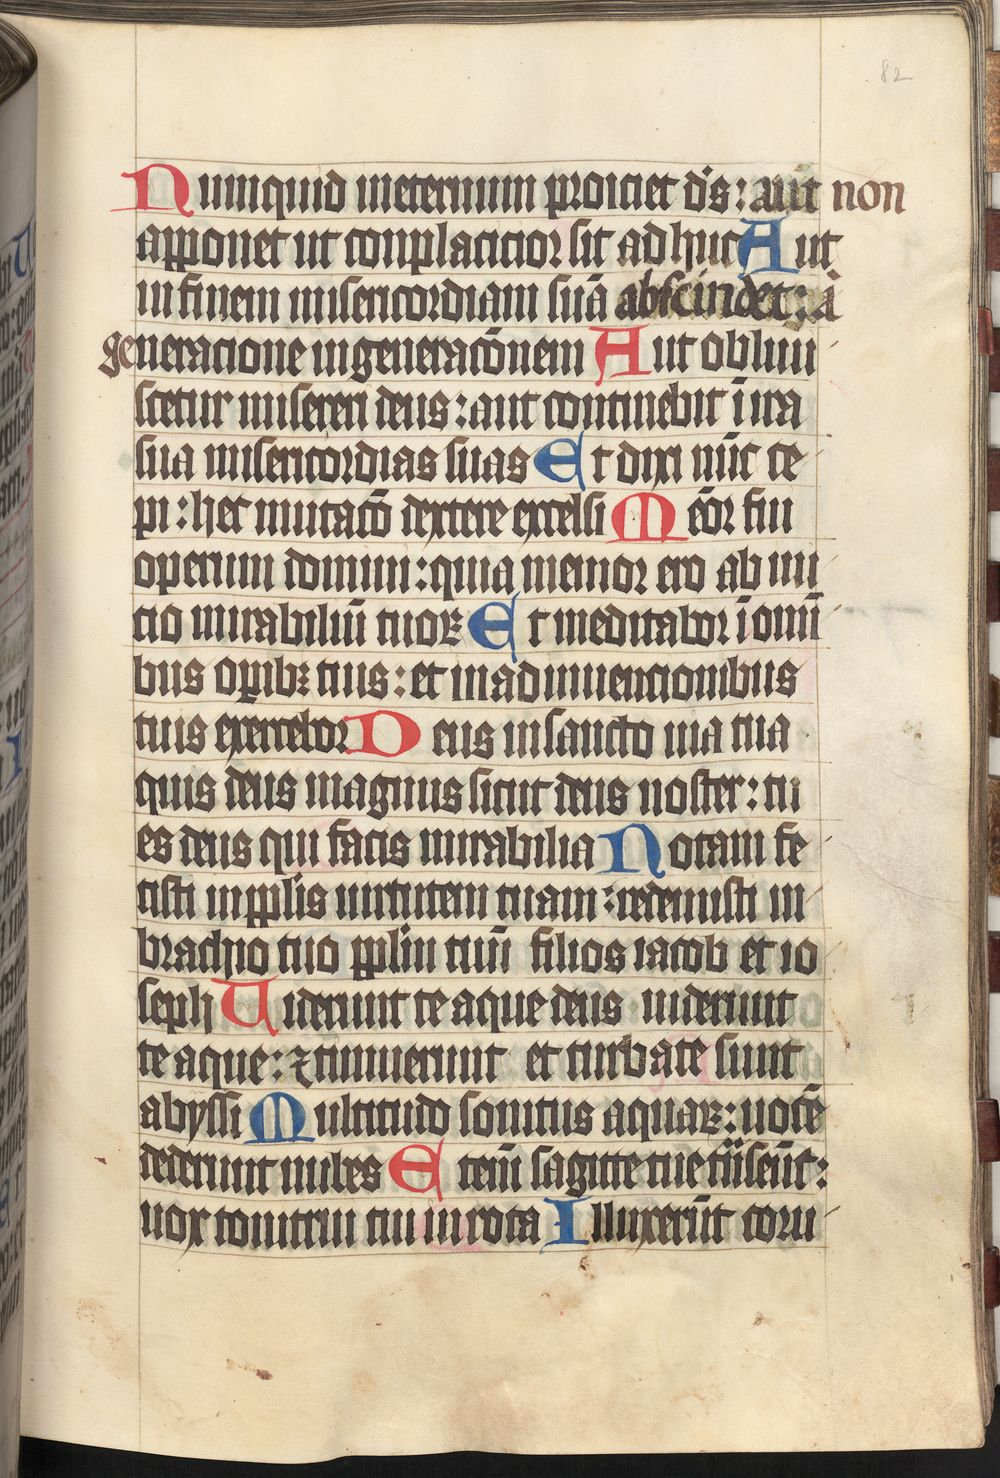 82
Numquid ineternum proiciet ds̄: aut non
apponet ut complacitior sit adhuc Aut
infinem misericordiam suā abscindet: a
generatione ingeneracōnem Aut oblivi
scetur misereri deus: aut continebit ī ira
sua misericordias suas Et dixi nūc ce
pi: hec mutacō dextere excelsi Meōr fui
operum domini: quia memor ero ab ini
cio mirabiliū tuoꝝ Et meditabor ī omī
bus opībꝫ tuis: et inadinuencionibus
tuis exercebor Deus insancto uia tua
quis deus magnus sicut deus noster: tu
es deus qui facis mirabilia Notam fe
cisti inpp̄lis uirtutem tuam: redemisti in
brachio tuo pp̄lm tuū filios iacob et io
seph Uiderunt te aque deus uiderunt
te aque: ⁊ timuerunt et turbate sunt
abyssi Multitudo sonitus aquaꝝ: uocē
dederunt nubes Etenī sagitte tue trāseūt:
uox tonitrui tui in rota Illuxerūt coru